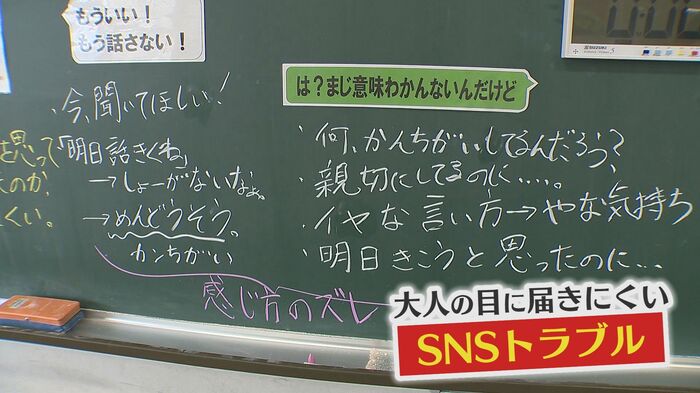 もういい！
もう話さない！
今、聞いてほしい！
は？まじ意味わかんないんだけど
思って
のか、
くい。
「明日話きくね」
→しょーがないなぁ。
→めんどうそう。
カンちがい
・何、かんちがいしてるんだろう？
・親切にしてるのに……。
・イヤな言い方→やな気持ち
・明日きこうと思ったのに…
感じ方のズレ
大人の目に届きにくい
SNSトラブル